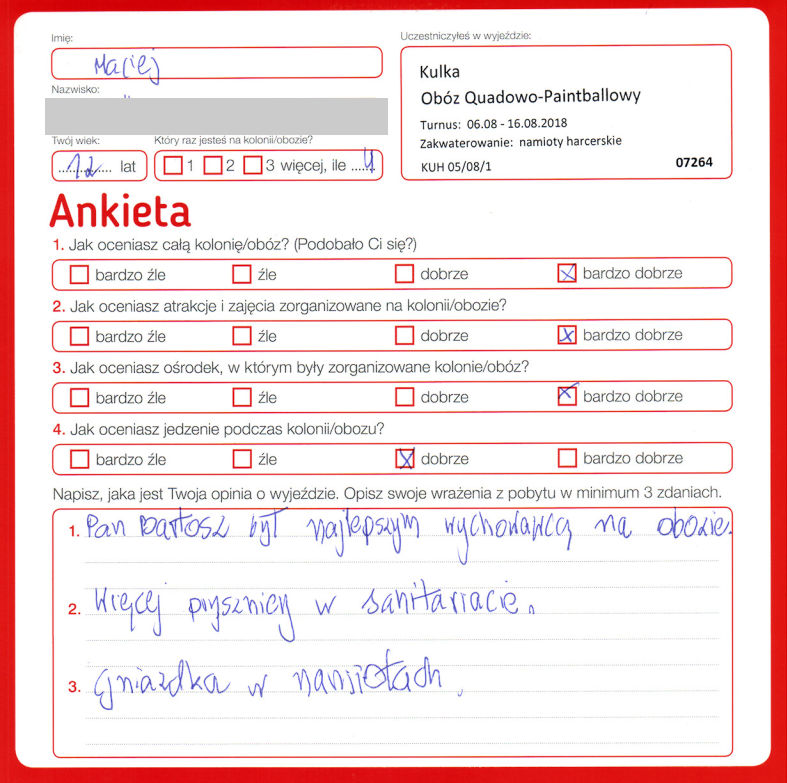 Imię:
Maciej
Nazwisko:
Twój wiek:
12 lat
Który raz jesteś na kolonii/obozie?
1 2 3 więcej, ile 4
Uczestniczyłeś w wyjeździe:
Kulka
Obóz Quadowo-Paintballowy
Turnus: 06.08 - 16.08.2018
Zakwaterowanie: namioty harcerskie
KUH 05/08/1 07264
Ankieta
1. Jak oceniasz całą kolonię/obóz? (Podobało Ci się?)
bardzo źle źle dobrze bardzo dobrze
2. Jak oceniasz atrakcje i zajęcia zorganizowane na kolonii/obozie?
bardzo źle źle dobrze bardzo dobrze
3. Jak oceniasz ośrodek, w którym były zorganizowane kolonie/obóz?
bardzo źle źle dobrze bardzo dobrze
4. Jak oceniasz jedzenie podczas kolonii/obozu?
bardzo źle źle dobrze bardzo dobrze
Napisz, jaka jest Twoja opinia o wyjeździe. Opisz swoje wrażenia z pobytu w minimum 3 zdaniach.
1. Pan Bartosz był najlepszym wychowawcą na obozie.
2. Więcej prysznicy w sanitariacie.
3. Gniazdka w namiotach.